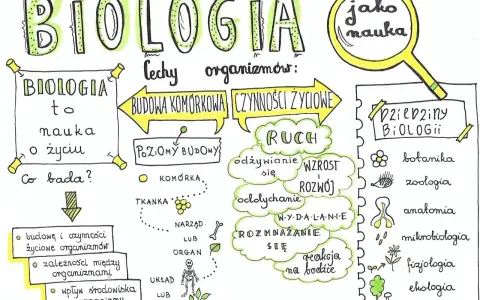 BIOLOGIA
jako
nauka
Cechy organizmów:
BIOLOGIA
to
nauka
o życiu
Co bada?
budowę i czynności
życiowe organizmów
zależności między
organizmami
wpływ środowiska
BUDOWA KOMÓRKOWA
POZIOMY BUDOWY
KOMÓRKA
TKANKA
NARZĄD
LUB
ORGAN
UKŁAD
LUB
CZYNNOŚCI ŻYCIOWE
RUCH
odżywianie
się
WZROST
i
ROZWÓJ
oddychanie
WYDALANIE
ROZMNAŻANIE
SIĘ
reakcja
na bodźce
DZIEDZINY
BIOLOGII
botanika
zoologia
anatomia
mikrobiologia
fizjologia
ekologia